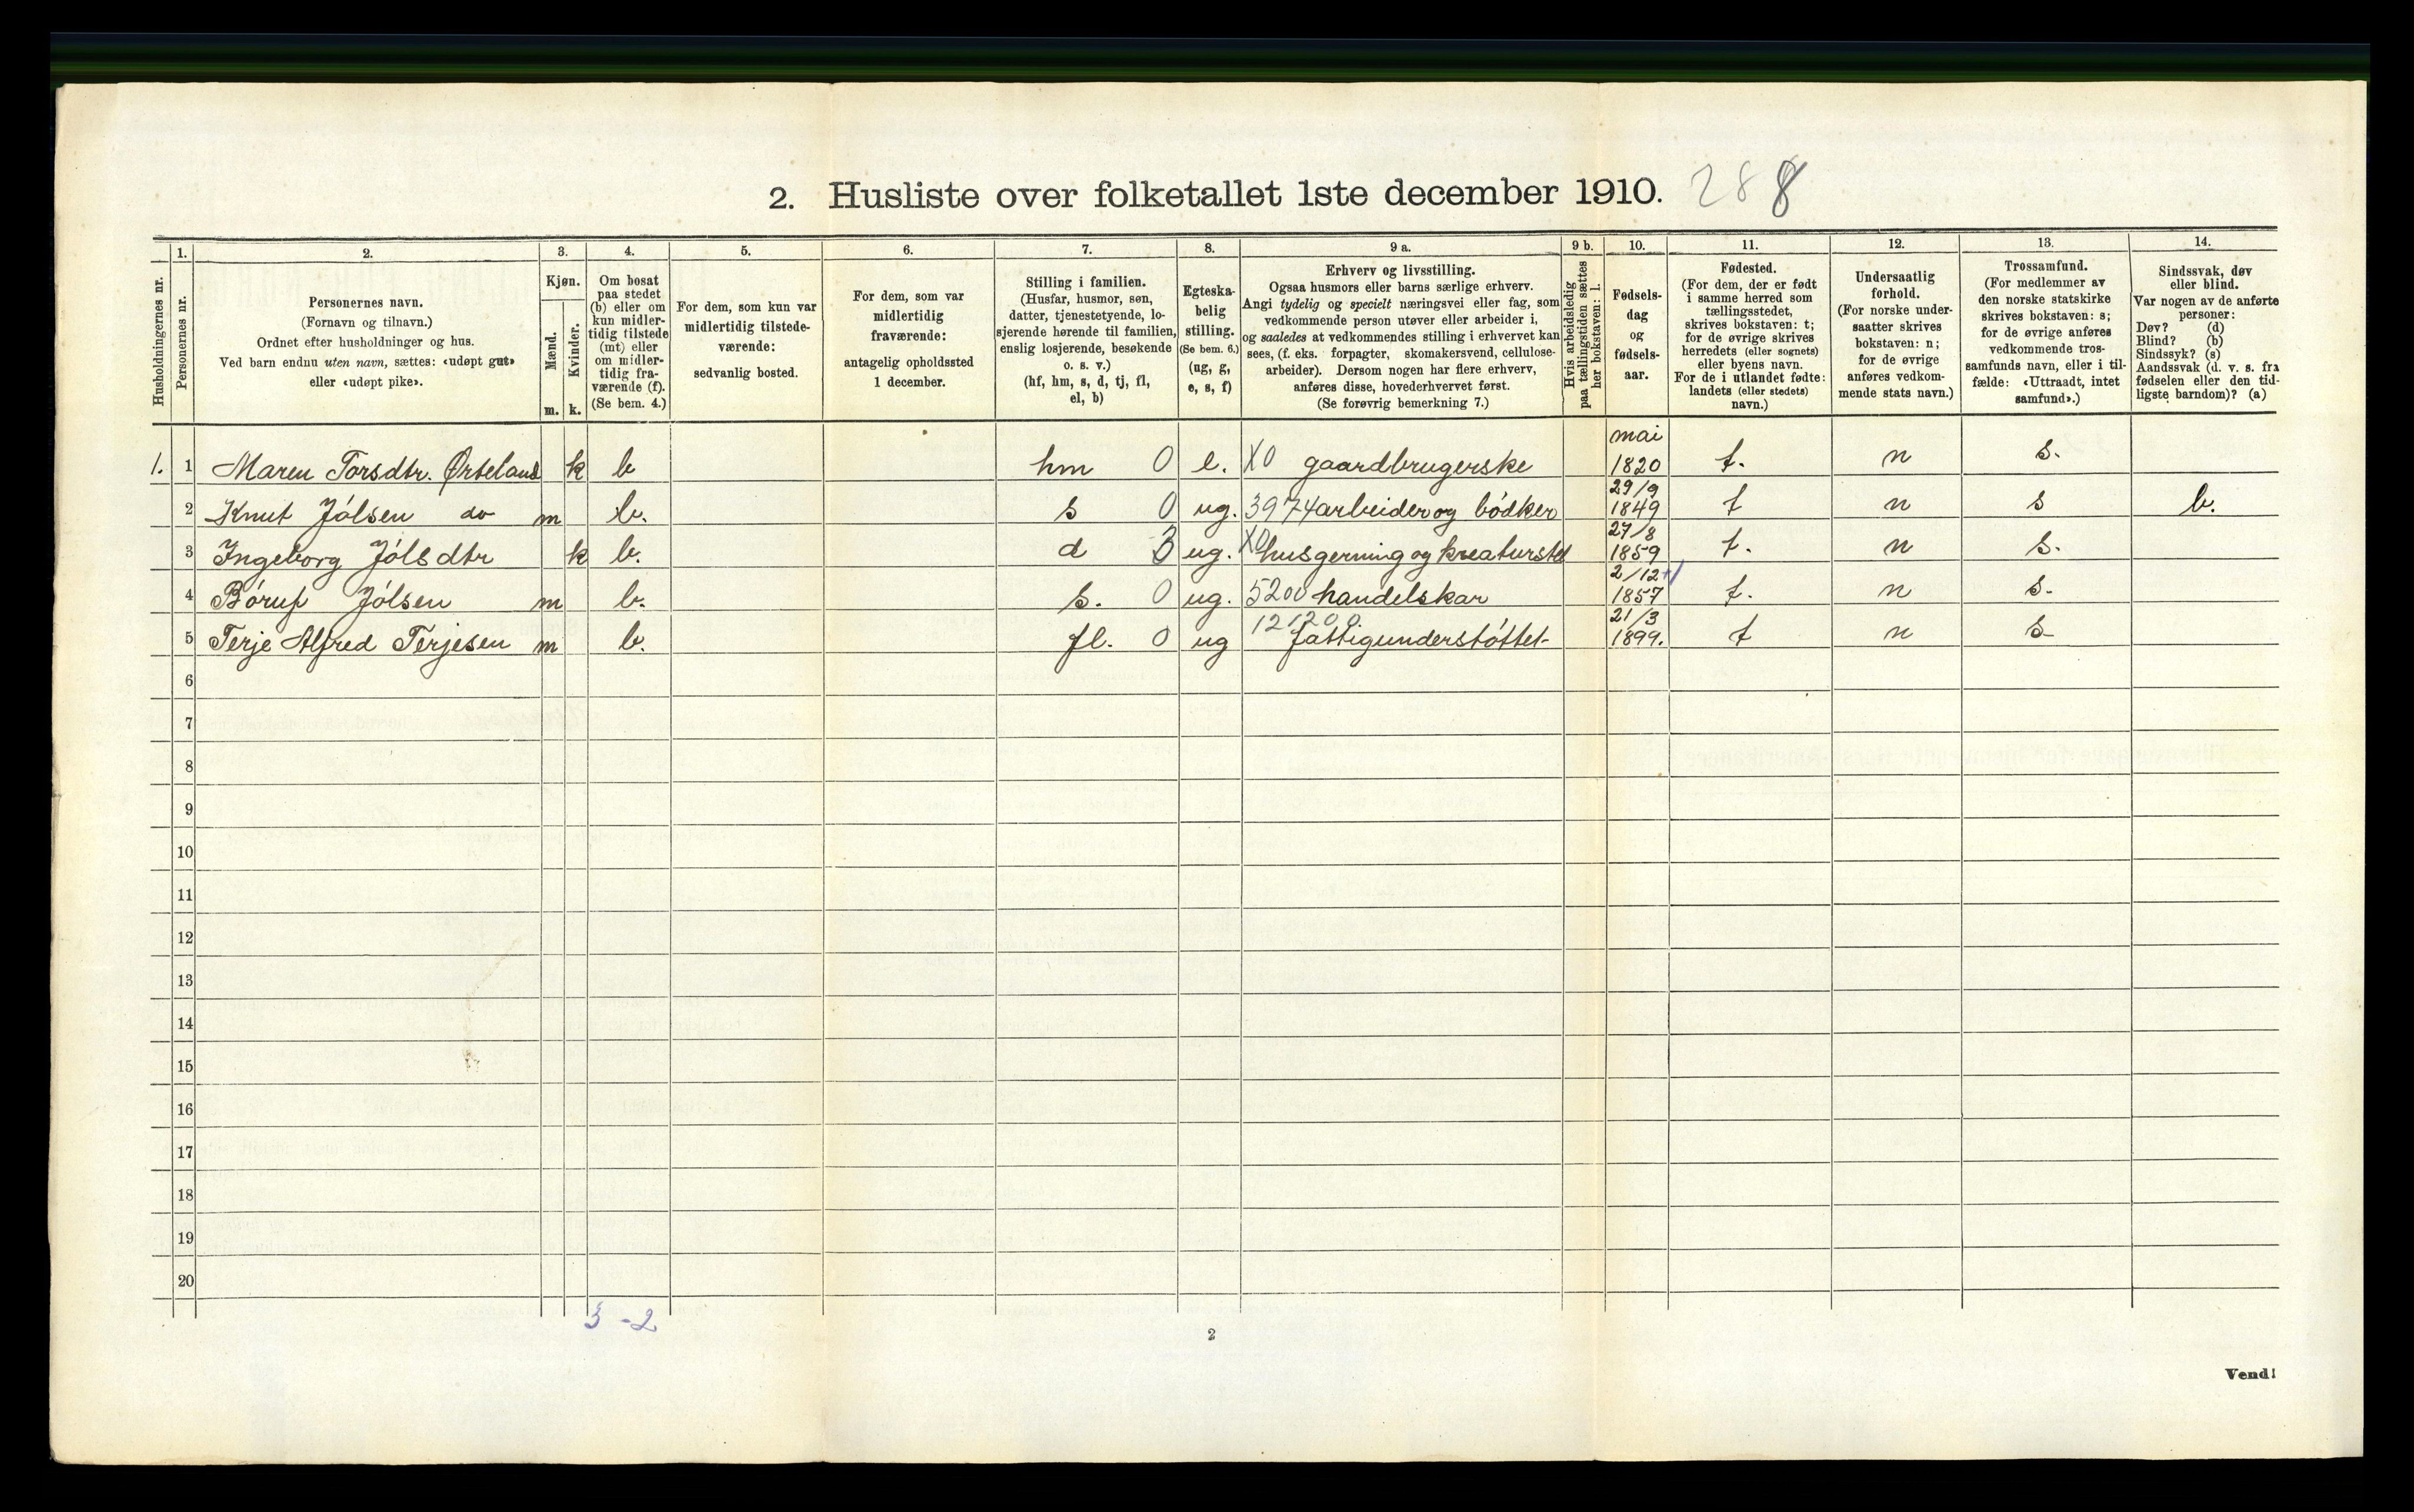 2. Husliste over folketallet 1ste december 1910. 288
Husholdningernes nr.
1.
Personernes nr.
2.
Personernes navn.
(Fornavn og tilnavn.)
Ordnet efter husholdninger og hus.
Ved barn endnu uten navn, sættes: «udøpt gut»
eller «udøpt pike».
3.
Kjøn.
Mænd.
Kvinder.
m. k.
4.
Om bosat
paa stedet
(b) eller om
kun midler-
tidig tilstede
(mt) eller
om midler-
tidig fra-
værende (f).
(Se bem. 4.)
5.
For dem, som kun var
midlertidig tilstede-
værende:
sedvanlig bosted.
6.
For dem, som var
midlertidig
fraværende:
antagelig opholdssted
1 december.
7.
Stilling i familien.
(Husfar, husmor, søn,
datter, tjenestetyende, lo-
sjerende hørende til familien,
enslig losjerende, besøkende
o. s. v.)
(hf, hm, s, d, tj, fl,
el, b)
8.
Egteska-
belig
stilling.
(Se bem. 6.)
(ug, g,
e, s, f)
9 a.
Erhverv og livsstilling.
Ogsaa husmors eller barns særlige erhverv.
Angi tydelig og specielt næringsvei eller fag, som
vedkommende person utøver eller arbeider i,
og saaledes at vedkommendes stilling i erhvervet kan
sees, (f. eks. forpagter, skomakersvend, cellulose-
arbeider). Dersom nogen har flere erhverv,
anføres disse, hovederhvervet først.
(Se forøvrig bemerkning 7.)
9 b.
Hvis arbeidsledig
paa tællingstiden sættes
her bokstaven: l.
10.
Fødsels-
dag
og
fødsels-
aar.
11.
Fødested.
(For dem, der er født
i samme herred som
tællingsstedet,
skrives bokstaven: t;
for de øvrige skrives
herredets (eller sognets)
eller byens navn.
For de i utlandet fødte:
landets (eller stedets)
navn.)
12.
Undersaatlig
forhold.
(For norske under-
saatter skrives
bokstaven: n;
for de øvrige
anføres vedkom-
mende stats navn.)
13.
Trossamfund.
(For medlemmer av
den norske statskirke
skrives bokstaven: s;
for de øvrige anføres
vedkommende tros-
samfunds navn, eller i til-
fælde: «Uttraadt, intet
samfund».)
14.
Sindssvak, døv
eller blind.
Var nogen av de anførte
personer:
Døv? (d)
Blind? (b)
Sindssyk? (s)
Aandssvak (d. v. s. fra
fødselen eller den tid-
ligste barndom)? (a)
1. 1 Maren Torsdtr. Ørteland k b hm 0 e. X0 gaardbrugerske mai 1820 t. n s.
2 Knut Jólsen do m b. s 0 ug. 3974 arbeider og bódker 29/9 1849 t n s b.
3 Ingeborg Jólsdtr k b. d 3 ug. X0 husgerning og kreaturstel 27/8 1859 t. n s.
4 Bórup Jólsen m b. s. 0 ug. 5200 handelskar 2/12 1857 t. n s.
5 Terje Alfred Terjesen m b. fl. 0 ug 121200 fattigunderstóttet 21/3 1899. t n s
6
7
8
9
10
11
12
13
14
15
16
17
18
19
20
3 - 2
2
Vend!